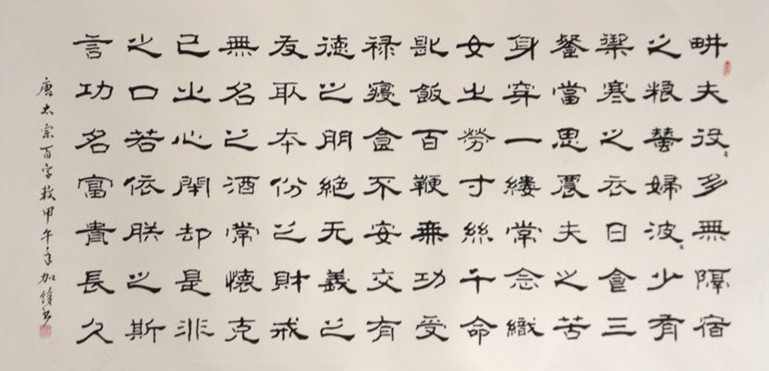 畊夫役〻多無隔宿
之粮蝅婦波〻少有
禦寒之衣日食三
餐當思農夫之苦
身穿一縷常念織
女之勞寸絲千命
匙飯百鞭無功受
禄寢食不安交有
德之朋絕无義之
友取本份之財戒
無名之酒常懷克
己之心閉却是非
之口若依朕之斯
言功名富貴長久
唐太宗百字箴甲午年加維書